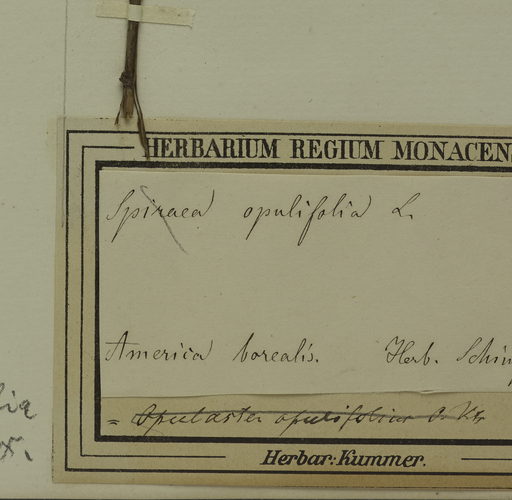 HERBARIUM REGIUM MONACEN
Spiraea opulifolia L.
America borealis. Herb. Schim
= Opulaster opulifolius O. Ktz
Herbar: Kummer.